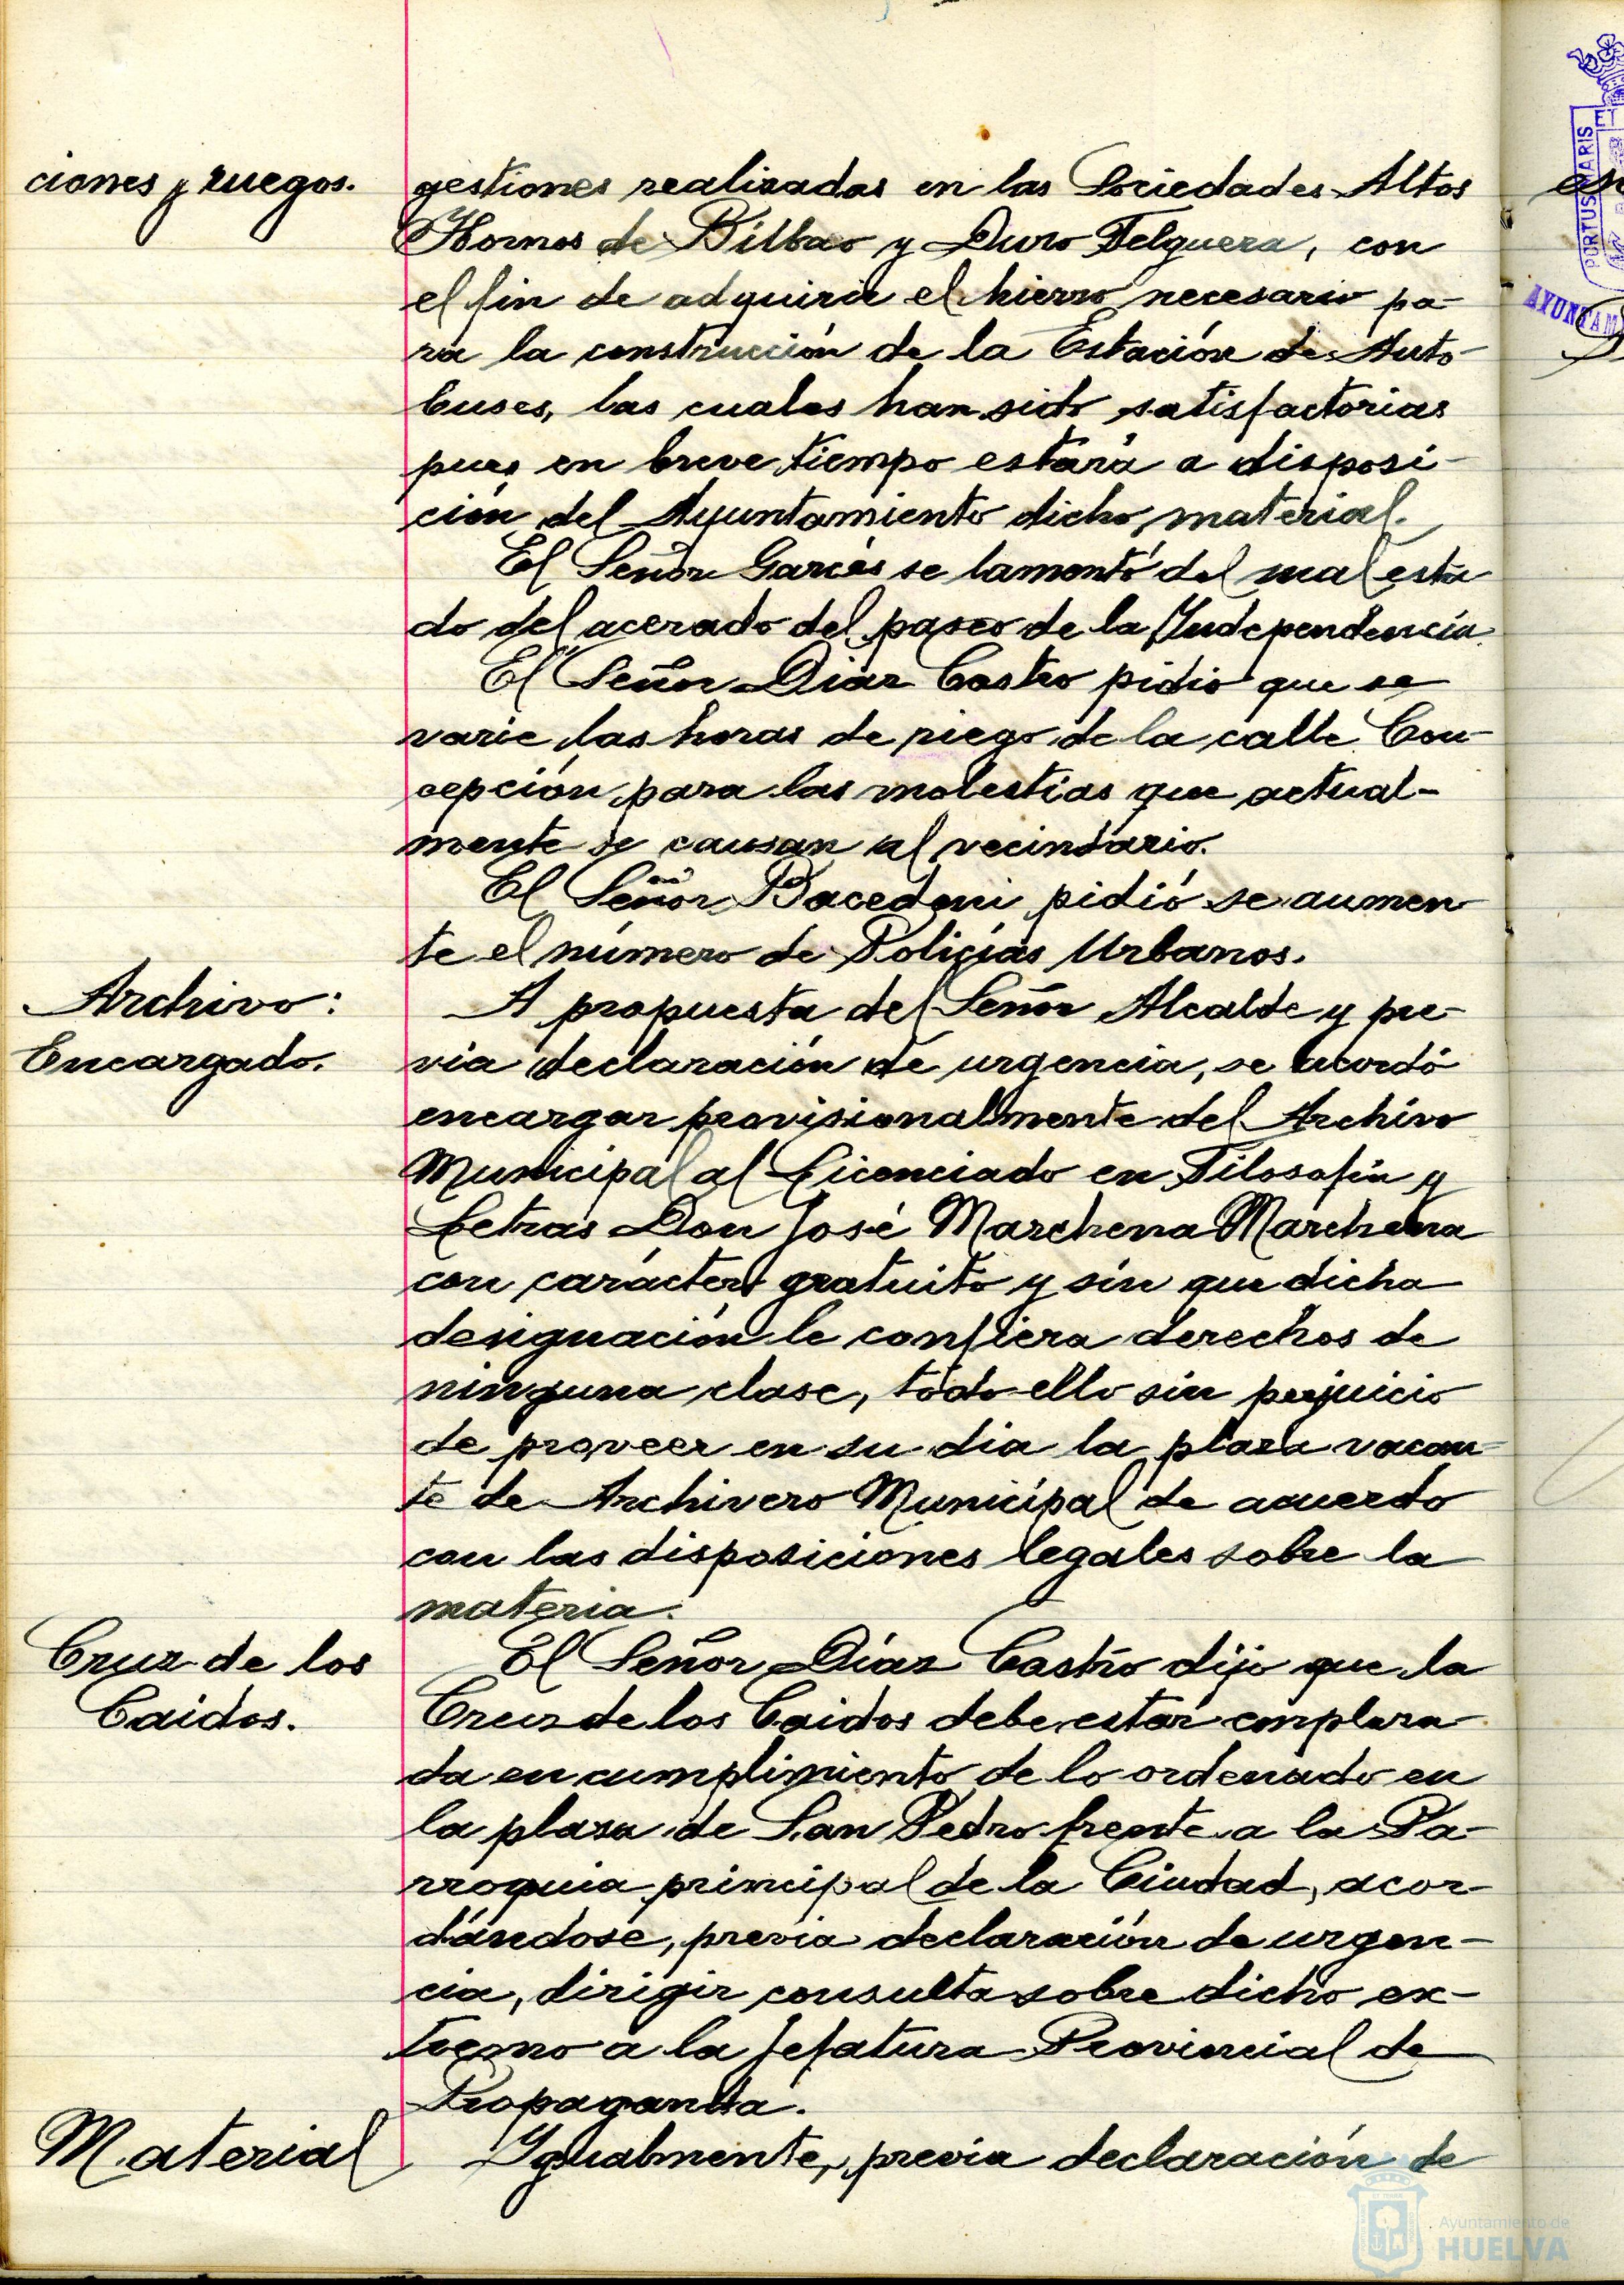 ciones y ruegos.
gestiones realizadas en las Sociedades Altos
Hornos de Bilbao y Duro Felguera, con
el fin de adquirir el hierro necesario pa-
ra la construcción de la Estación de Auto-
buses, las cuales han sido satisfactorias
pues en breve tiempo estará a disposi-
ción del Ayuntamiento dicho material.
El Señor Garcés se lamentó del mal esta-
do del acerado del paseo de la Independencia.
El Señor Diaz Castro pidió que se
varie las horas de riego de la calle Con-
cepción para las molestias que actual-
mente se causan al vecindario.
El Señor Bacedoni pidió se aumen-
te el número de Policías Urbanos.
Archivo:
Encargado.
A propuesta del Señor Alcalde y pre-
via declaración de urgencia, se acordó
encargar provisionalmente del Archivo
Municipal al Licenciado en Filosofía y
Letras Don José Marchena Marchena
con carácter gratuito y sin que dicha
designación le confiera derechos de
ninguna clase, todo ello sin perjuicio
de proveer en su dia la plaza vacan-
te de Archivero Municipal de acuerdo
con las disposiciones legales sobre la
materia.
Cruz de los
Caidos.
El Señor Díaz Castro dijo que la
Cruz de los Caidos debe estar emplaza-
da en cumplimiento de lo ordenado en
la plaza de San Pedro frente a la Pa-
rroquia principal de la Ciudad, acor-
dándose, previa declaración de urgen-
cia, dirigir consulta sobre dicho ex-
tremo a la Jefatura Provincial de
Propaganda.
Material
Igualmente, previa declaración de
PORTUS MARIS
AYUNTAM
Ayuntamiento de
HUELVA